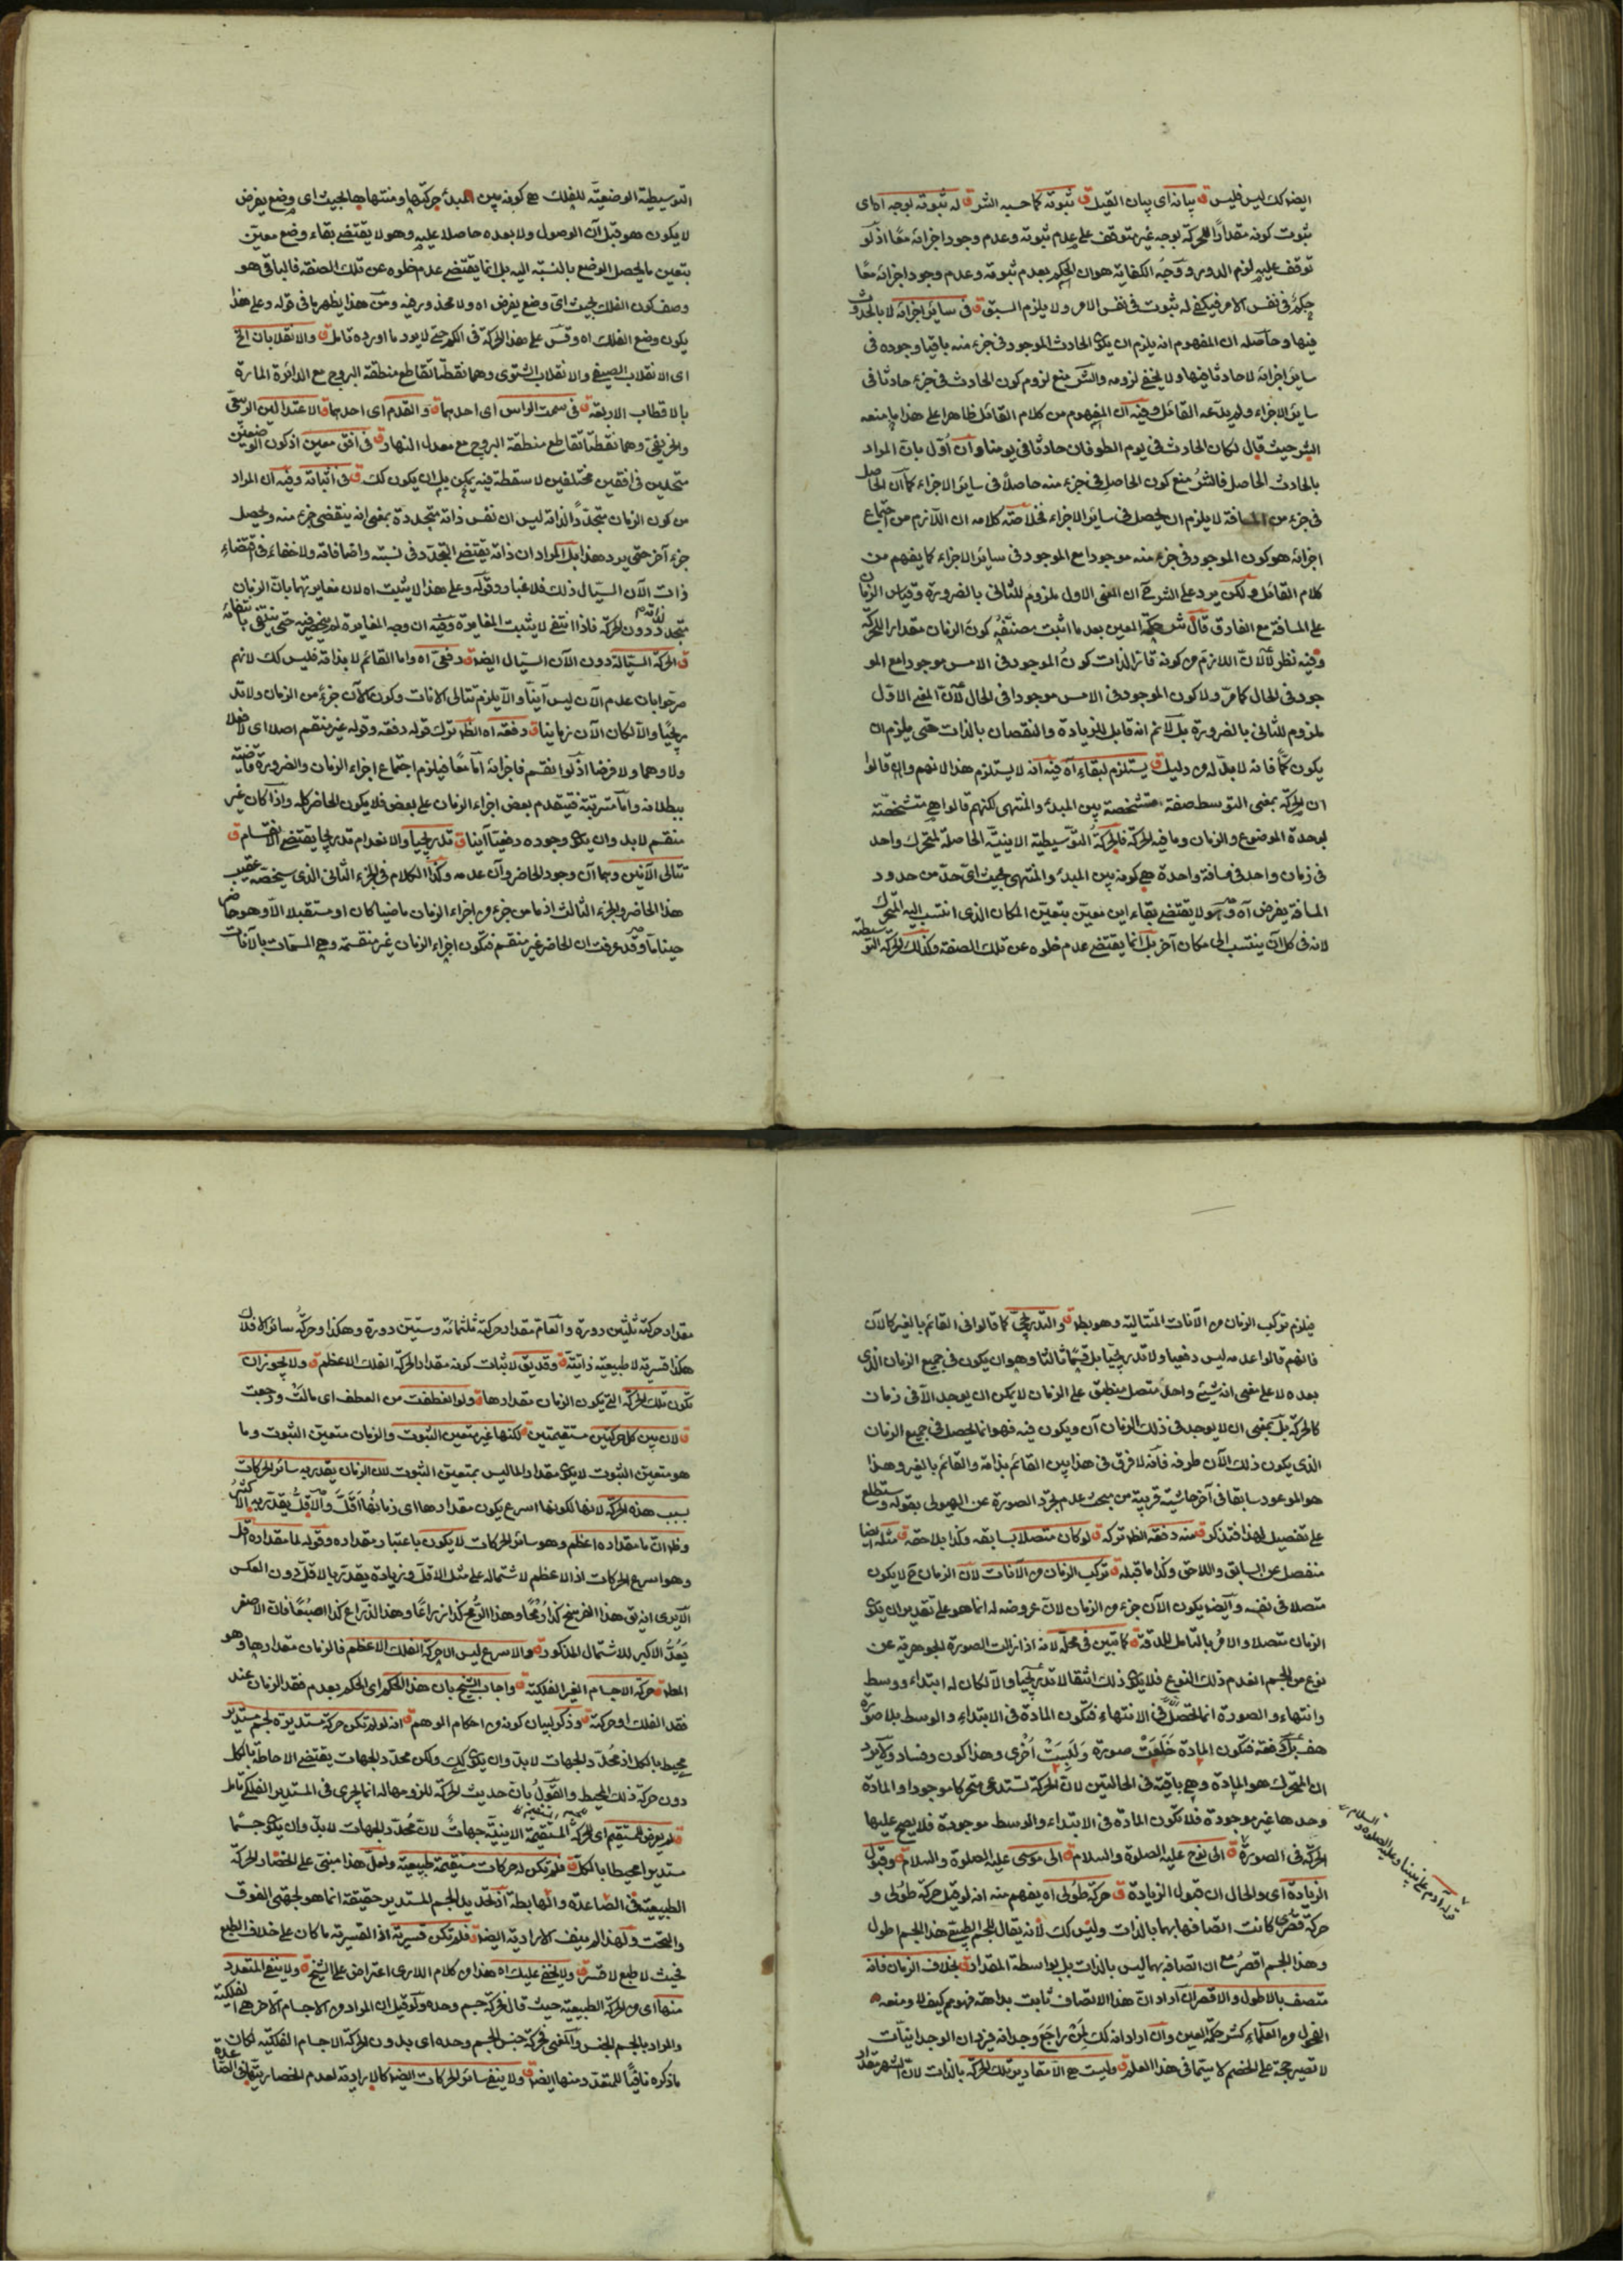 ايضا كك ليس فليس ق بيانه اى بيان القيل ق ثبوته كما حسبه الشر ق له ثبوته بوجه اه اى
ثبوت كونه مقدارا للحركة بوجه غير متوقف على عدم ثبوته وعدم وجود اجزائه معا اذ لو
توقف عليه لزم الدور ووجه الكفاية هو ان الحكم بعدم ثبوته وعدم وجود اجزائه معا
حكم فى نفس الامر فيكفى له ثبوت فى نفس الامر ولا يلزم السبق ق فى سائر اجزائه لا بالحدوث
فيها وحاصله ان المفهوم انه يلزم ان يكون الحادث الموجود فى جزء منه باقيا وجوده فى
سائر اجزائه لا حادثا فيها ولا يخفى لزومه والشر منع لزوم كون الحادث فى جزء حادثا فى
سائر الاجزاء ولم يدعه القائل وفيه ان المفهوم من كلام القائل ظاهرا على هذا ما منعه
الشر حيث قال لكان الحادث فى يوم الطوفان حادثا فى يومنا وان اول بان المراد
بالحادث الحاصل فالشر منع كون الحاصل فى جزء منه حاصلا فى سائر الاجزاء كما ان الحاصل
فى جزء من المسافة لا يلزم ان يحصل فى سائر الاجزاء فخلاصة كلامه ان اللازم من اجتماع
اجزائه هو كون الموجود فى جزء منه موجودا مع الموجود فى سائر الاجزاء كما يفهم من
كلام القائل ولكن يرد على الشر ح ان المعنى الاول ملزوم للثانى بالضرورة وقياس الزمان
على المسافة مع الفارق قال ش حكمة العين بعد ما اثبت مصنفه كون الزمان مقدارا للحركة
وفيه نظر لان اللازم من كونه قار الذات كون الموجود فى الامس موجودا مع المو
جود فى الحال كما مر ولا كون الموجود فى الامس موجودا فى الحال لان المعنى الاول
ملزوم للثانى بالضرورة بل لا نم انه قابل للزيادة والنقصان بالذات حتى يلزم ان
يكون كما فانه لا بد له من دليل ق يستلزم لبقاءه اه فيه انه لا يستلزم هذا لانهم وان قالوا
ان الحركة بمعنى التوسط صفة متشخصة بين المبدء والمنتهى لكنهم قالوا هى متشخصة
بوحدة الموضوع والزمان وما فيه الحركة فالحركة التوسطية الاينية الحاصلة لمتحرك واحد
فى زمان واحد فى مسافة واحدة هى كونه بين المبدء والمنتهى بحيث اى حد من حدود
المسافة يفرض اه وهو لا يقتضى بقاء اين معين بتعين المكان الذى انتسب اليه المتحرك
لانه فى كل ان ينتسب الى مكان آخر بل انما يقتضى عدم خلوه عن تلك الصفة وكذلك الحركة التوسطية
التوسطية الوضعية للفلك هى كونه بين مبدء حركتها ومنتهاها بحيث اى وضع يفرض
لا يكون هو قبل آن الوصول ولا بعده حاصلا عليه وهو لا يقتضى بقاء وضع معين
بتعين ما يحصل الوضع بالنسبة اليه بل انما يقتضى عدم خلوه عن تلك الصفة فالباقى هو
وصف كون الفلك بحيث اى وضع يفرض اه ولا محذور فيه ومن هذا يظهر ما فى قوله وعلى هذا
يكون وضع الفلك اه وقس على هذا الحركة فى الكم حتى لا يرد ما اورده تامل ق والانقلابان الخ
اى الانقلاب الصيفى والانقلاب الشتوى وهما نقطتا تقاطع منطقة البروج مع الدائرة المارة
بالاقطاب الاربعة ق فى سمت الراس اى احدهما ق والقدم اى احدهما ق الاعتدالين الربيعى
والخريفى وهما نقطتا تقاطع منطقة البروج مع معدل النهار ق فى افق معين اذ كون الوضعين
متحدين فى افقين مختلفين لا سقطة فيه يمكن بل ان يكون كك ق فى اثباته وفيه ان المراد
من كون الزمان متجددا لذاته ليس ان نفس ذاته متجددة بمعنى انه ينقضى جزء منه ويحصل
جزء آخر حتى يرد هذا بل المراد ان ذاته يقتضى التجدد فى نسبته واضافاته ولا خفاء فى اقتضاء
ذات الآن السيال ذلك فلا غبار وقوله وعلى هذا لا يثبت اه لان مغايرتهما بان الزمان
متجدد دون الحركة فاذا انتفى لا يثبت المغايرة وفيه ان وجه المغايرة لم ينحصر فيه حتى ينتفى بانتفائه
ق الحركة السيالة دون الآن السيال ايضا ق دفعى اه واما القائم لا بذاته فليس كك لانهم
صرحوا بان عدم الآن ليس آنيا والا يلزم تتالى الانات وكون الآن جزء من الزمان ولا تد
ريجيا والا لكان الآن زمانيا ق دفعة اه الظ ترك قوله دفعة وقوله غير منقسم اصلا اى لا فعلا
ولا وهما ولا فرضا اذ لو انقسم فاجزائه اما معا فيلزم اجتماع اجزاء الزمان والضرورة قاضية
ببطلانه واما مترتبة فيتقدم بعض اجزاء الزمان على بعض فلا يكون الحاضر كله واذا كان غير
منقسم لا بد وان يكون وجوده دفعيا آنيا ق تدريجيا والانعدام تدريجا يقتضى الانقسام ق
تتالى الآنين وهما آن وجود الحاضر وآن عدمه وكذا الكلام فى الجزء الثانى الذى سيحضر عقيب
هذا الحاضر والجزء الثالث اذ ما من جزء من اجزاء الزمان ماضيا كان او مستقبلا الا وهو حاضر
حينا ما وقد عرفت ان الحاضر غير منقسم فتكون اجزاء الزمان غير منقسمة وهى المسمات بالآنات
فيلزم تركب الزمان من الآنات المتتالية وهو بط ق والتدريجى كما قالوا فى القائم بالغير كالآن
فانهم قالوا عدمه ليس دفعيا ولا تدريجيا بل قسما ثالثا وهو ان يكون فى جميع الزمان الذى
بعده لا على معنى انه شيئ واحد متصل منطبق على الزمان لا يمكن ان يوجد الا فى زمان
كالحركة بل بمعنى ان لا يوجد فى ذلك الزمان آن ويكون فيه فهو انما يحصل فى جميع الزمان
الذى يكون ذلك الآن طرفه فانه لا فرق فى هذا بين القائم بذاته والقائم بالغير وهذا
هو الموعود سابقا فى آخر حاشية قريبة من مبحث عدم تجرد الصورة عن الهيولى بقوله وستطلع
على تفصيل لهذا فتذكر ق منه دفعة الظ تركه ق لو كان متصلا بسابقه وكذا بلاحقه ق مثله ايضا
منفصل عن السابق واللاحق وكذا ما قبله ق تركب الزمان من الآنات لان الزمان ح لا يكون
متصلا فى نفسه وايضا يكون الآن جزء من الزمان لان عروضه له انما هو على تقدير ان يكون
الزمان متصلا والامر بالتامل للدقة ق كما تبين فى محله لانه اذا زالت الصورة الجوهرية عن
نوع من الجسم انعدم ذلك النوع فلا يكون ذلك انتقالا تدريجيا والا لكان له ابتداء ووسط
وانتهاء والصورة انما تحصل فى الانتهاء فتكون المادة فى الابتداء والوسط بلا صورة
هف بل دفعة فتكون المادة خلعت صورة ولبست اخرى وهذا كون وفساد ولا يرد
ان المتحرك هو المادة وهى باقية فى الحالتين لان الحركة تستدعى متحركا موجودا والمادة
وحدها غير موجودة فلا تكون المادة فى الابتداء والوسط موجودة فلا يصح عليها
الحركة فى الصورة ق الى نوح عليه الصلوة والسلام ق الى موسى عليه الصلوة والسلام ق وقبول
الزيادة اى والحال ان قبول الزيادة ق حركة طولى اه يفهم منه انه لو قيل حركة طولى و
حركة قصرى كانت اتصافها بهما بالذات وليس كك لانه يقال للجسم الطبيعى هذا الجسم اطول
وهذا الجسم اقصر مع ان اتصافه بهما ليس بالذات بل بواسطة المقدار ق بخلاف الزمان فانه
متصف بالاطول والاقصر ان اراد ان هذا الاتصاف ثابت بداهة فهو مم كيف لا ومنعه
الفحول من العلماء كش حكمة العين وان اراد انه كك لمن راجع وجدانه فيرد ان الوجدانيات
لا تصير حجة على الخصم لا سيما فى هذا العلم ق وليست هى الا مقادير تلك الحركة بالذات لان الشهر مقدار
قوله آدم على نبينا وعليه الصلوة والسلام
مقدار حركة ثلثين دورة والعام مقدار حركة ثلثمائة وستين دورة وهكذا وحركة سائر الافلاك
هكذا قسرية لا طبيعية ذاتية ق وقد يق لاثبات كونه مقدار الحركة الفلك الاعظم ق ولا يجوز ان
تكون تلك الحركة التى يكون الزمان مقدارها ق ولو انعطفت من العطف اى مالت ورجعت
ق لان بين كل حركتين مستقيمتين ق لكنها غير متعين الثبوت والزمان متعين الثبوت وما
هو متعين الثبوت لا يكون مقدارا لما ليس بمتعين الثبوت لان الزمان يقدر به سائر الحركات
بسبب هذه الحركة لانها لكونها اسرع يكون مقدارها اى زمانها اقل والاقل يقدر به الاكثر
وظ ان ما مقداره اعظم وهو سائر الحركات لا يكون باعتبار مقداره وقوله لما مقداره اقل
وهو اسرع الحركات اذ الاعظم لاشتماله على مثل الاقل وزيادة يقدر بالاقل دون العكس
الا يرى انه يق هذا الفرسخ كذا رمحا وهذا الرمح كذا زراعا وهذا الذراع كذا اصبعا فان الاصغر
يعد الاكبر للاشتمال المذكور ق والاسرع ليس الا حركة الفلك الاعظم فالزمان مقدارها وهو
المط ق حركة الاجسام الغير الفلكية ق واجاب الشيخ بان هذا الحكم اى الحكم بعدم فقد الزمان عند
فقد الفلك او حركته ق وذكر لبيان كونه من احكام الوهم ق انه لو لم تكن حركة مستديرة لجسم مستدير
محيط بالكل اذ محدد الجهات لا بد وان يكون كك ولكن محدد الجهات يقتضى الاحاطة بالكل
دون حركة ذلك المحيط والقول بان حديث الحركة للزومها له انما يجرى فى المستدير الفلكى تامل
ق لم يعرض للمستقيم اى للحركة المستقيمة الاينية جهات لان محدد الجهات لا بد وان يكون جسما
مستديرا محيطا بالكل ق فلم تكن له حركات مستقيمة طبيعية ولعل هذا مبنى على انحصار الحركة
الطبيعية فى الصاعدة والهابطة اذ تحديد الجسم المستدير حقيقة انما هو لجهتى الفوق
والتحت ولهذا لم ينف الارادية ايضا ق فلم تكن قسرية اذ القسرية ما كان على خلاف الطبع
فحيث لا طبع لا قسر ق ولا يخفى عليك اه هذا من كلام اللارى اعتراض على الشيخ ق ولا ينفى المتعدد
منها اى من الحركة الطبيعية حيث قال فحركة جسم وحده ولو قيل ان المراد من الاجسام الاخر هى الفلكية
والمراد بالجسم الجنس والمعنى فحركة جنس الجسم وحده اى بدون الحركة الاجسام الفلكية لكان
ما ذكره نافيا للمتعدد منها ايضا ق ولا ينفى سائر الحركات ايضا كالارادية لعدم انحصارها فى الصاعدة